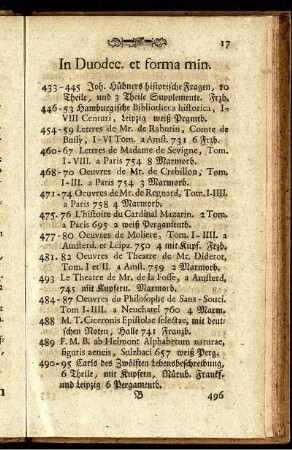 17
In Duodec. et forma min.
433-445 Joh. Hübners historische Fragen, 10
Theile, und 3 Theile Supplemente. Frzb.
446-53 Hamburgische Bibliotheca historica, I-
VIII Centuri, Leipzig weiß Prgmtb.
454-59 Lettres de Mr. de Rabutin, Comte de
Bussy, I-VI Tom. a Amst. 731 6 Frzb.
460-67 Lettres de Madame de Sevigne, Tom.
I-VIII. a Paris 754 8 Marmorb.
468-70 Oeuvres de Mr. de Crebillon, Tom.
I-III. a Paris 754 3 Marmorb.
471-74 Oeuvres de Mr. de Regnard, Tom. I-IIII.
a Paris 758 4 Marmorb.
475. 76 L'histoire du Cardinal Mazarin. 2 Tom.
a Paris 695 2 weiß Pergamentb.
477-80 Oeuvres de Moliere, Tom. I-IIII. a
Amsterd. et Leipz. 750 4 mit Kupf. Frzb.
481. 82 Oeuvres de Theatre de Mr. Diderot,
Tom. I et II. a Amst. 759 2 Marmorb.
493 Le Theatre de Mr. de la Fosse, a Amsterd.
745 mit Kupfern. Marmorb.
484-87 Oeuvres du Philosophe de Sans-Souci.
Tom I-IIII. a Neuchatel 760 4 Marm.
488 M. T. Ciceronis Epistolae selectae, mit deut-
schen Noten, Halle 741 Franzb.
489 F. M. B. ab Helmont Alphabetum naturae,
figuris aeneis, Sulzbaci 657 weiß Perg.
490-95 Carls des Zwölften Lebensbeschreibung,
6 Theile, mit Kupfern, Nürnb. Frankf.
und Leipzig 6 Pergamentb.
B 496